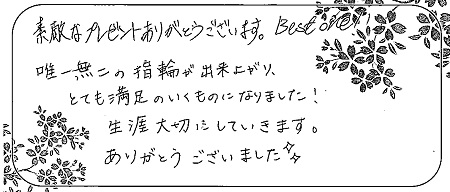 素敵なプレゼントありがとうございます。Best one!
唯一無二の指輪が出来上がり、
とても満足のいくものになりました!
生涯大切にしていきます。
ありがとうございました